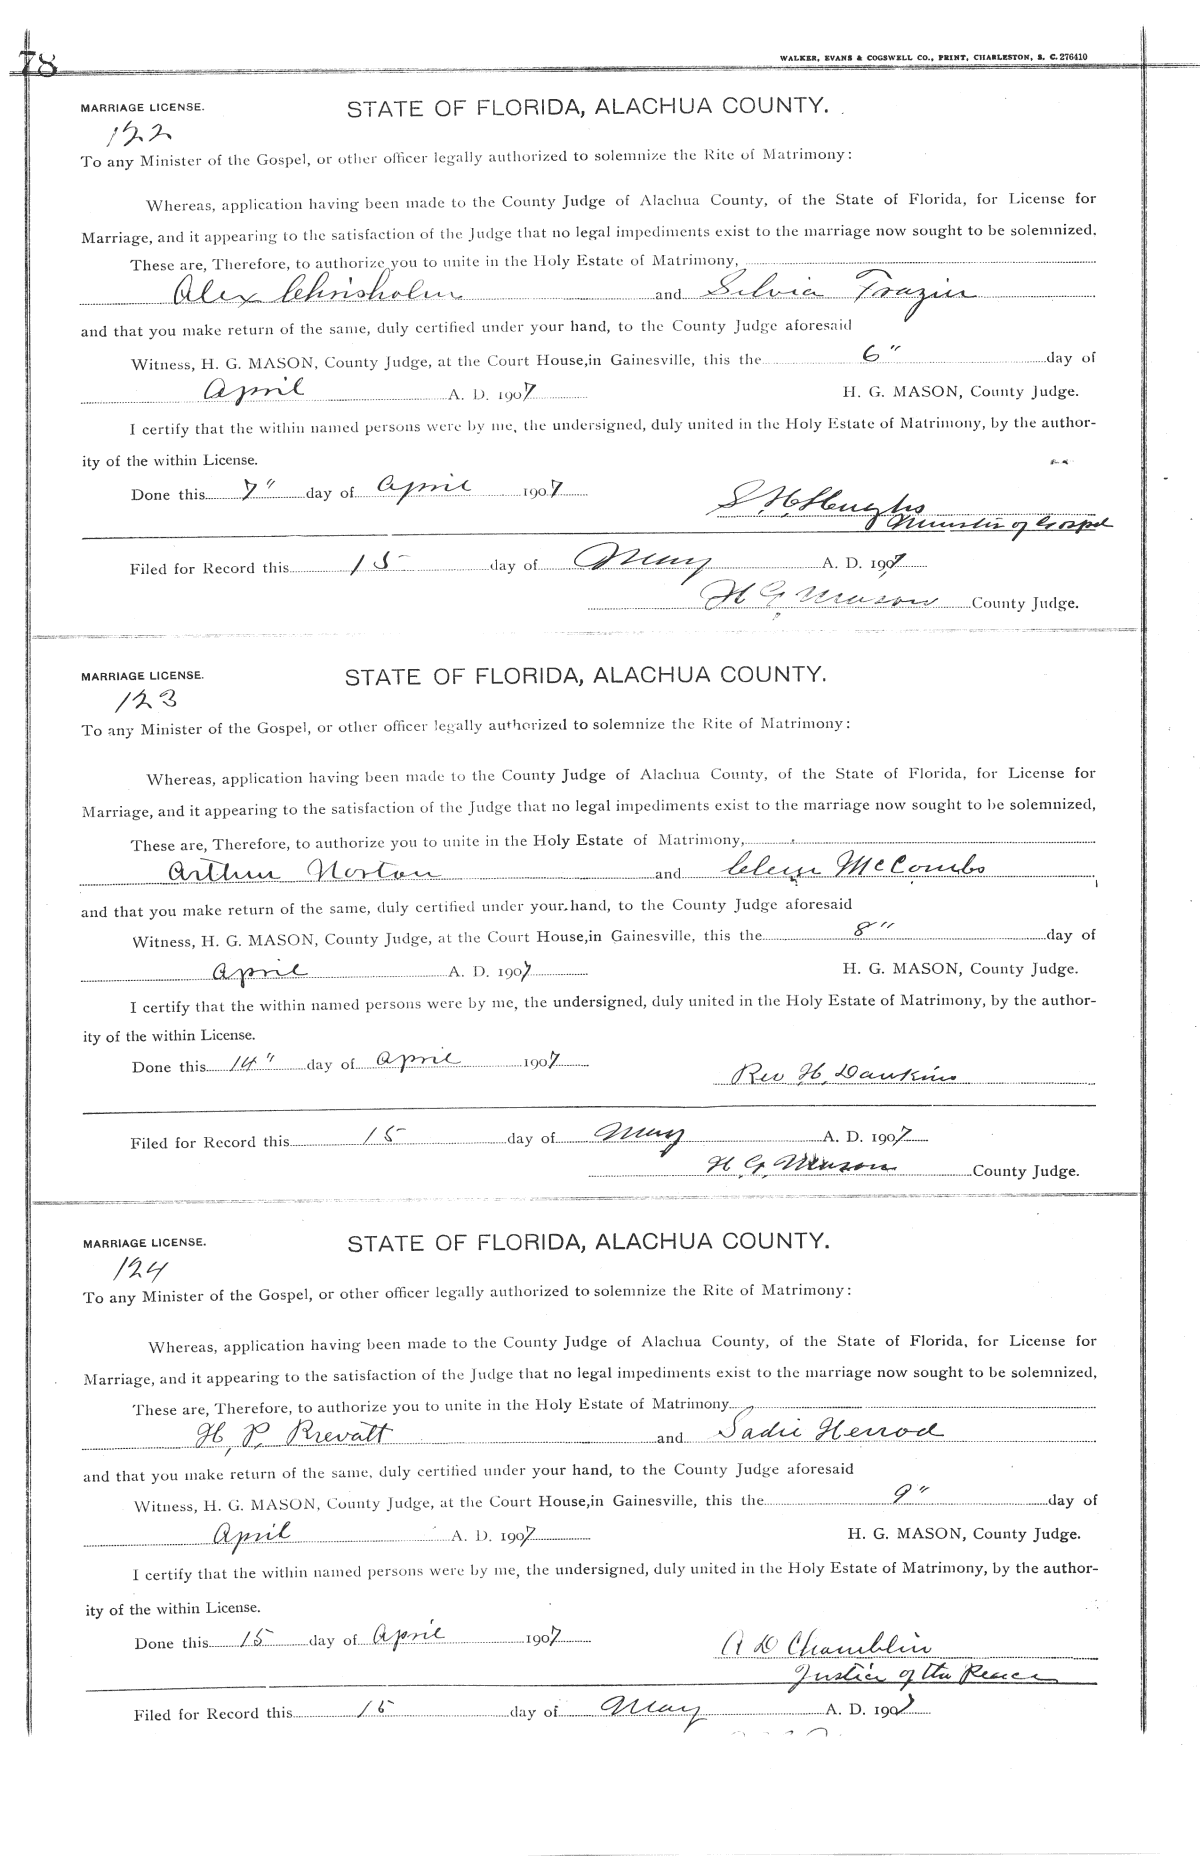 78
WALKER, EVANS & COGSWELL CO., PRINT, CHARLESTON, S. C. 276410
MARRIAGE LICENSE. STATE OF FLORIDA, ALACHUA COUNTY.
122
To any Minister of the Gospel, or other officer legally authorized to solemnize the Rite of Matrimony:
Whereas, application having been made to the County Judge of Alachua County, of the State of Florida, for License for
Marriage, and it appearing to the satisfaction of the Judge that no legal impediments exist to the marriage now sought to be solemnized.
These are, Therefore, to authorize you to unite in the Holy Estate of Matrimony,
Alex Chrisholm and Silvia Frazier
and that you make return of the same, duly certified under your hand, to the County Judge aforesaid
Witness, H. G. MASON, County Judge, at the Court House, in Gainesville, this the 6" day of
April A. D. 1907 H. G. MASON, County Judge.
I certify that the within named persons were by me, the undersigned, duly united in the Holy Estate of Matrimony, by the author-
ity of the within License.
Done this 7" day of April 1907 S. H. Hughs
Minister of Gospel
Filed for Record this 15 day of May A. D. 1907
H G Mason County Judge.
MARRIAGE LICENSE. STATE OF FLORIDA, ALACHUA COUNTY.
123
To any Minister of the Gospel, or other officer legally authorized to solemnize the Rite of Matrimony:
Whereas, application having been made to the County Judge of Alachua County, of the State of Florida, for License for
Marriage, and it appearing to the satisfaction of the Judge that no legal impediments exist to the marriage now sought to be solemnized,
These are, Therefore, to authorize you to unite in the Holy Estate of Matrimony,
Arthur Norton and McCombs
and that you make return of the same, duly certified under your hand, to the County Judge aforesaid
Witness, H. G. MASON, County Judge, at the Court House, in Gainesville, this the 8" day of
April A. D. 1907 H. G. MASON, County Judge.
I certify that the within named persons were by me, the undersigned, duly united in the Holy Estate of Matrimony, by the author-
ity of the within License.
Done this 14" day of April 1907 Rev H, Dawkins
Filed for Record this 15 day of May A. D. 1907
H. G. Mason County Judge.
MARRIAGE LICENSE. STATE OF FLORIDA, ALACHUA COUNTY.
124
To any Minister of the Gospel, or other officer legally authorized to solemnize the Rite of Matrimony:
Whereas, application having been made to the County Judge of Alachua County, of the State of Florida, for License for
Marriage, and it appearing to the satisfaction of the Judge that no legal impediments exist to the marriage now sought to be solemnized,
These are, Therefore, to authorize you to unite in the Holy Estate of Matrimony
H, P, Prevatt and Sadie Herrod
and that you make return of the same, duly certified under your hand, to the County Judge aforesaid
Witness, H. G. MASON, County Judge, at the Court House, in Gainesville, this the 9" day of
April A. D. 1907 H. G. MASON, County Judge.
I certify that the within named persons were by me, the undersigned, duly united in the Holy Estate of Matrimony, by the author-
ity of the within License.
Done this 15 day of April 1907 D Chamblin
Justice of the Peace
Filed for Record this 15 day of May A. D. 1907